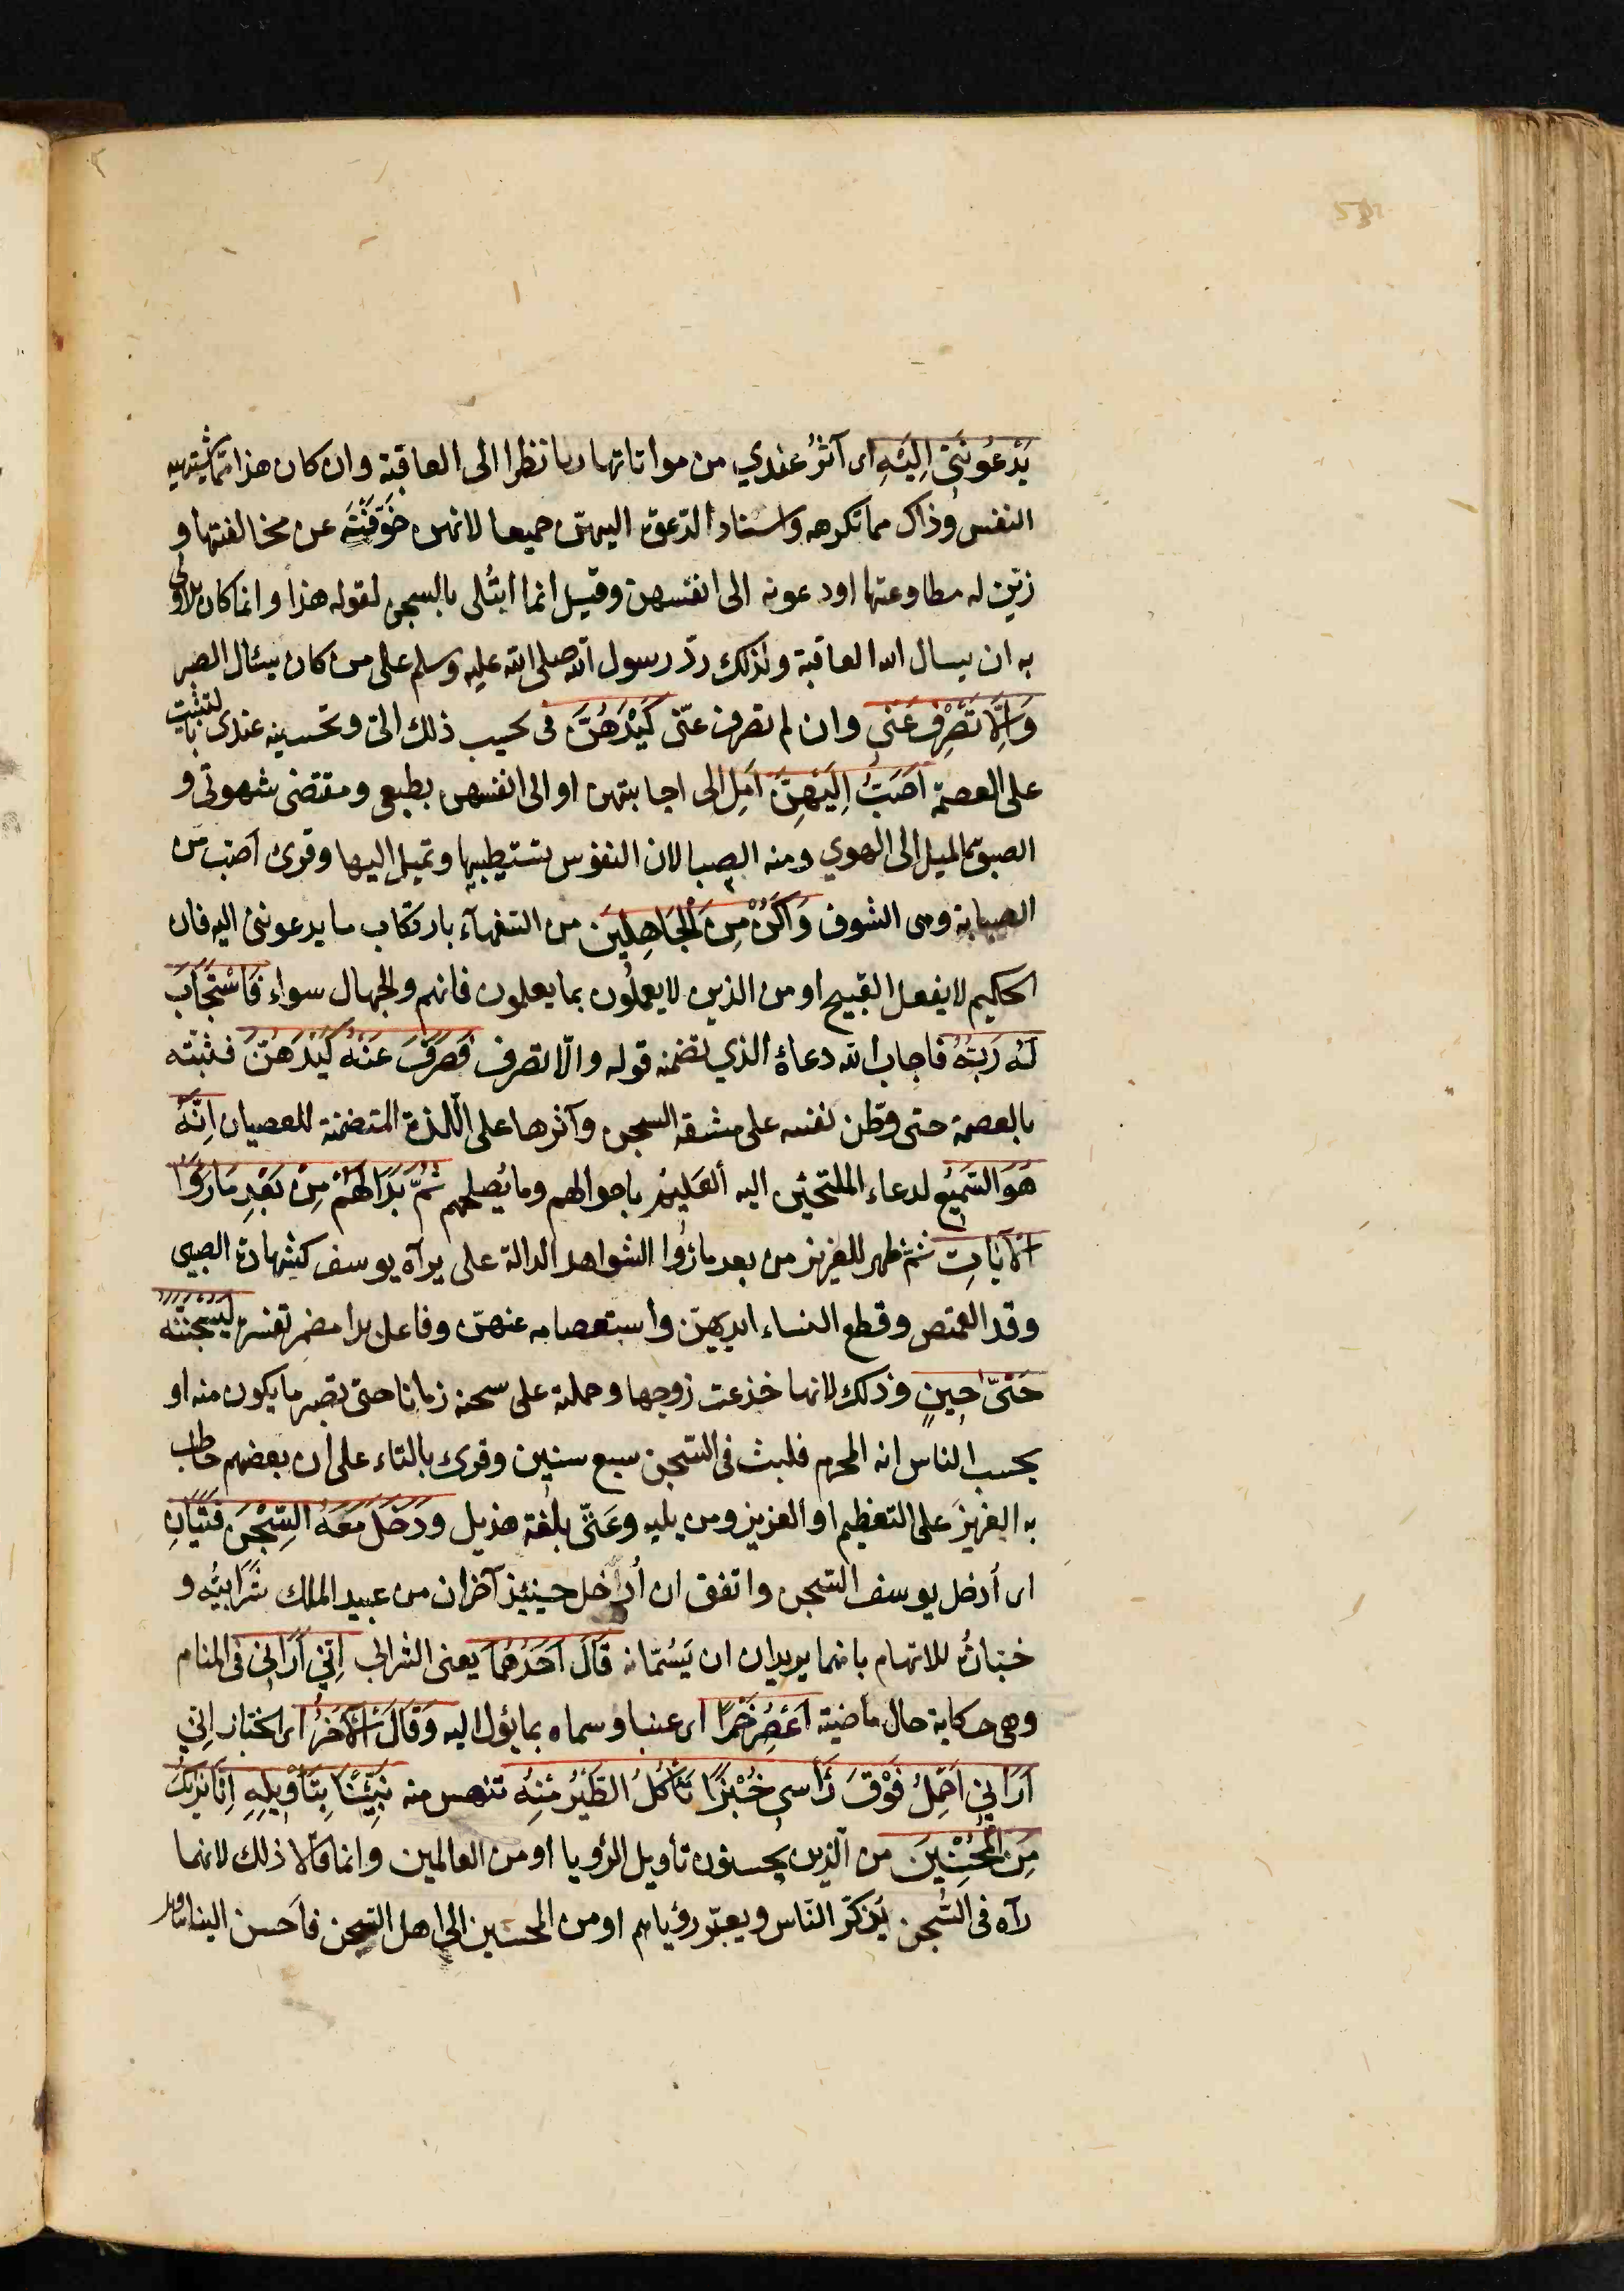 يَدْعُونَنِي اِلَيْهِ اى آثَرُ عندي من مواتاتها زنا نظرا الى العاقبة وان كان هذا مما تشتهيه
النفس وذاك مما تكرهه واسناد الدّعوة اليهنّ جميعا لانهن خَوَّفْنَهُ عن مخالفتها و
زيّن له مطاوعتها او دعونه الى انفسهن وقيل انما ابتُلى بالسجن لقوله هذا وانما كان الاولى
به ان يسال الله العاقبة ولذلك ردّ رسول الله صلى الله عليه وسلم على من كان يسئال الصبر
وَاِلَّا تَصْرِفْ عَنّي وان لم تصرف عنّى كَيْدَهُنَّ فى تحبيب ذلك الىّ وتحسينه عندى بالتثبيت
على العصمة اَصْبُ اِلَيْهِنَّ اَمِل الى اجابتهن او الى انفسهن بطبعى ومقتضى شهوتى و
الصبوة الميل الى الهوي ومنه الصبا لان النفوس تستطيبها وتميل اليها وقرئ اَصَبّ من
الصبابة وهى الشوق وَاَكُنْ مِنَ الْجَاهِلينَ من السّفهآء بارتكاب ما يدعوننى اليه فان
الحكيم لا يفعل القبيح او من الذين لا يعملُون بما يعلمون فانهم والجهال سواء فَاسْتَجَابَ
لَهُ رَبُّهُ فاجاب الله دعاءَهُ الذي تضمنه قوله والّا تصرف فَصَرَفَ عَنْهُ كَيْدَهُنَّ فثبّته
بالعصمة حتى وطّن نفسه على مشقة السجن وآثرها على اللّذة المتضمنة للعصيان اِنَّهُ
هُوَ السَّمِيعُ لدعاء الملتجئين اليه اَلْعَلِيمُ باحوالهم وما يُصلحهم ثُمَّ بَدَا لَهُمْ مِنْ بَعْدِ مَا رَوَا
الْآيَاتِ ثمّ ظهر للعزيز من بعد ما رؤُا الشواهد الدالة على براءة يوسف كشهادة الصبى
وقد القميص وقطع النساء ايديهنّ واستعصامه عنهنّ وفاعل بدا مضمر تفسره لَيَسْجُنُنَّهُ
حَتّى حِينٍ وذلك لانها خدعت زوجها وحملته على سجنه زمانا حتى تبصر ما يكون منه او
يحسب الناس انه المجرم فلبث فى السّجن سبع سنين وقرئ بالتاء على ان بعضهم خاطب
به العزيزَ على التعظيم او العزيز ومن يليه وعَتّى بلغة هذيل وَدَخَلَ مَعَهُ السِّجْنَ فَتَيَانِ
اى أدخل يوسف السّجن واتفق ان أدخل حينئذ آخران من عبيد الملك شَرابيُّه و
خبّازُه للاتهام بانهما يريدان ان يَسُمّانه قَالَ اَحَدُهُمَا يعنى الشرابى اِنّي اَرَانى فى المنام
وهى حكاية حال ماضية اَعْصِرُ خَمْرًا اى عنبا وسماه بما يؤل اليه وَقَالَ الْآخَرُ اى الخباز اِنّي
اَرَاني اَحْمِلُ فَوْقَ رَأسي خُبْزًا تَأكُلُ الطَّيْرُ مِنْهُ تنهس منه نَبِّئْنَا بِتَأوِيلِهِ اِنَّا نَريكَ
مِنَ الْمُحْسِنِينَ من الّذين يحسنون تأويل الرؤيا او من العالمين وانما قالا ذلك لانهما
رآه فى السّجن يُذكرّ النّاس ويعبّر رؤياهم او من المحسنين الى اهل السّجن فاَحسن الينا